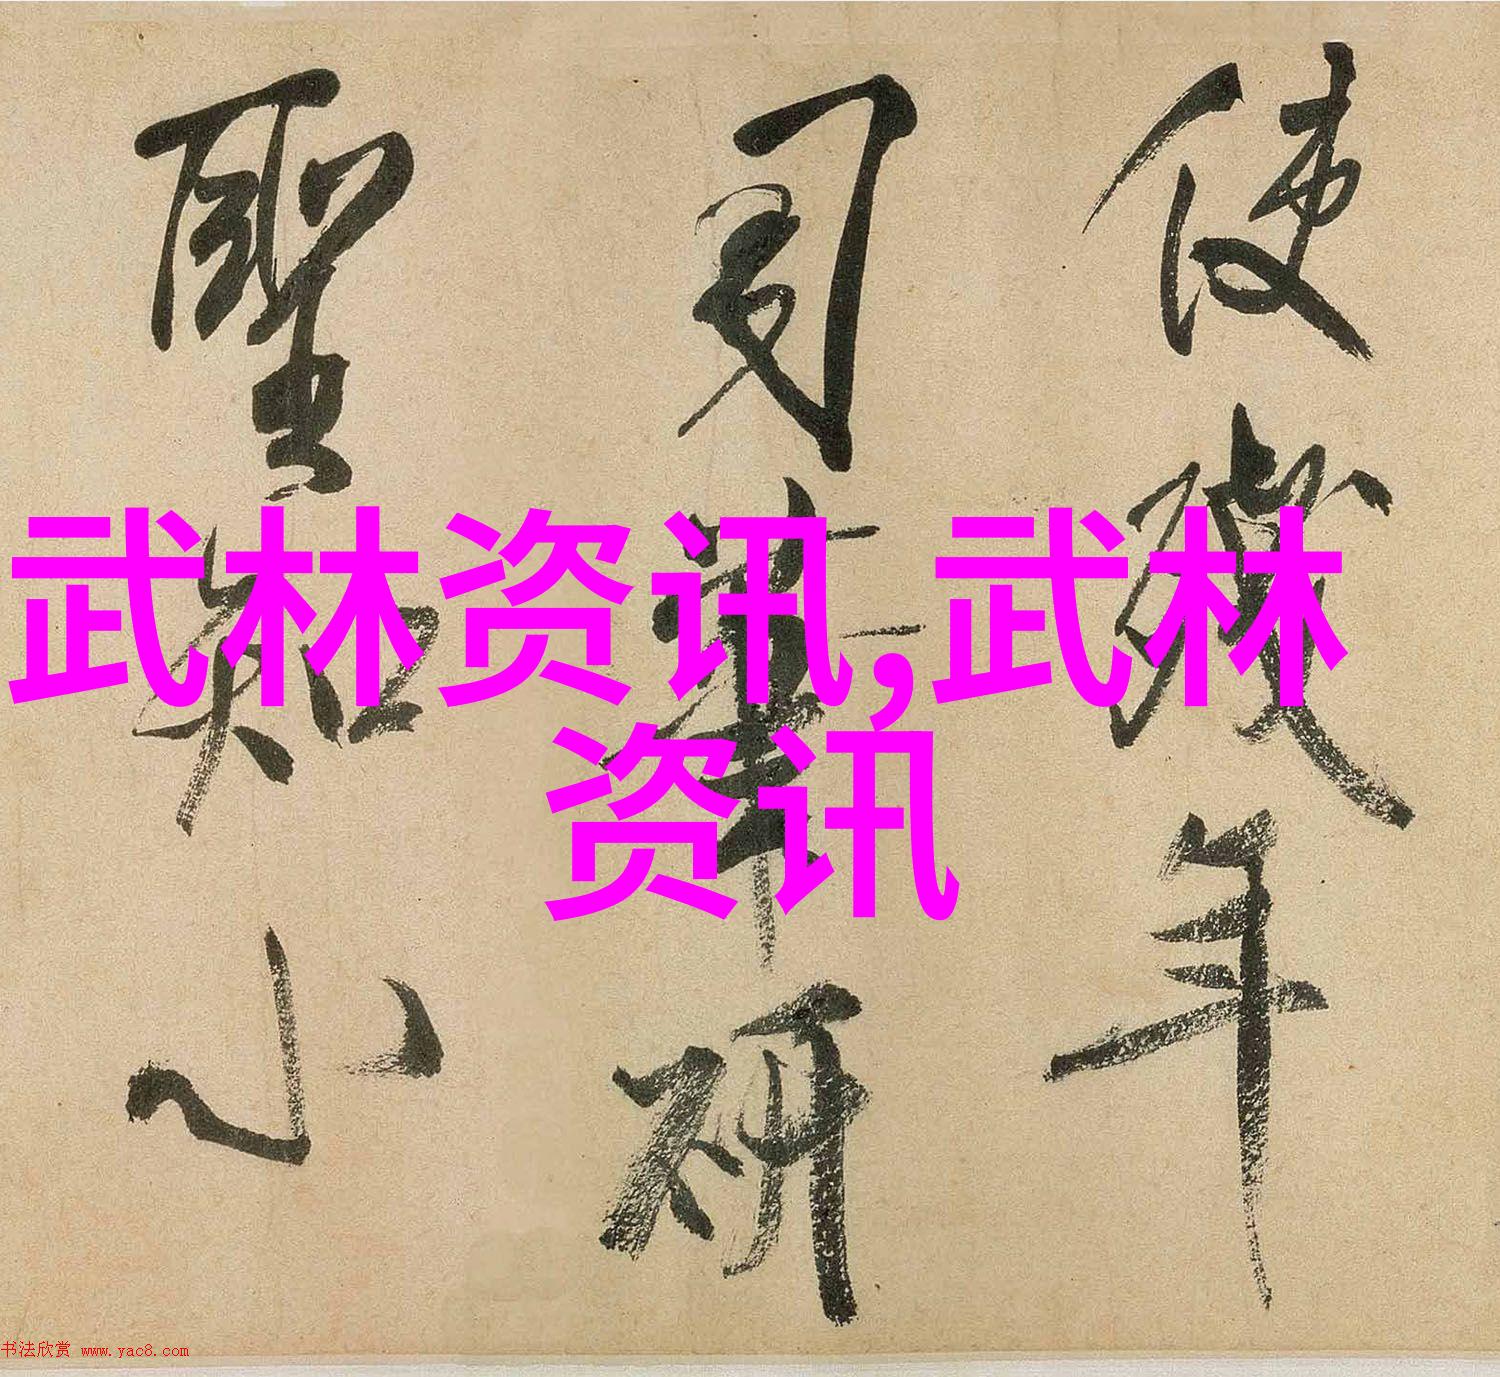 使殘年
司筆研
聖知小
武林资讯,武林
资讯
书法欣赏 www.yac8.com